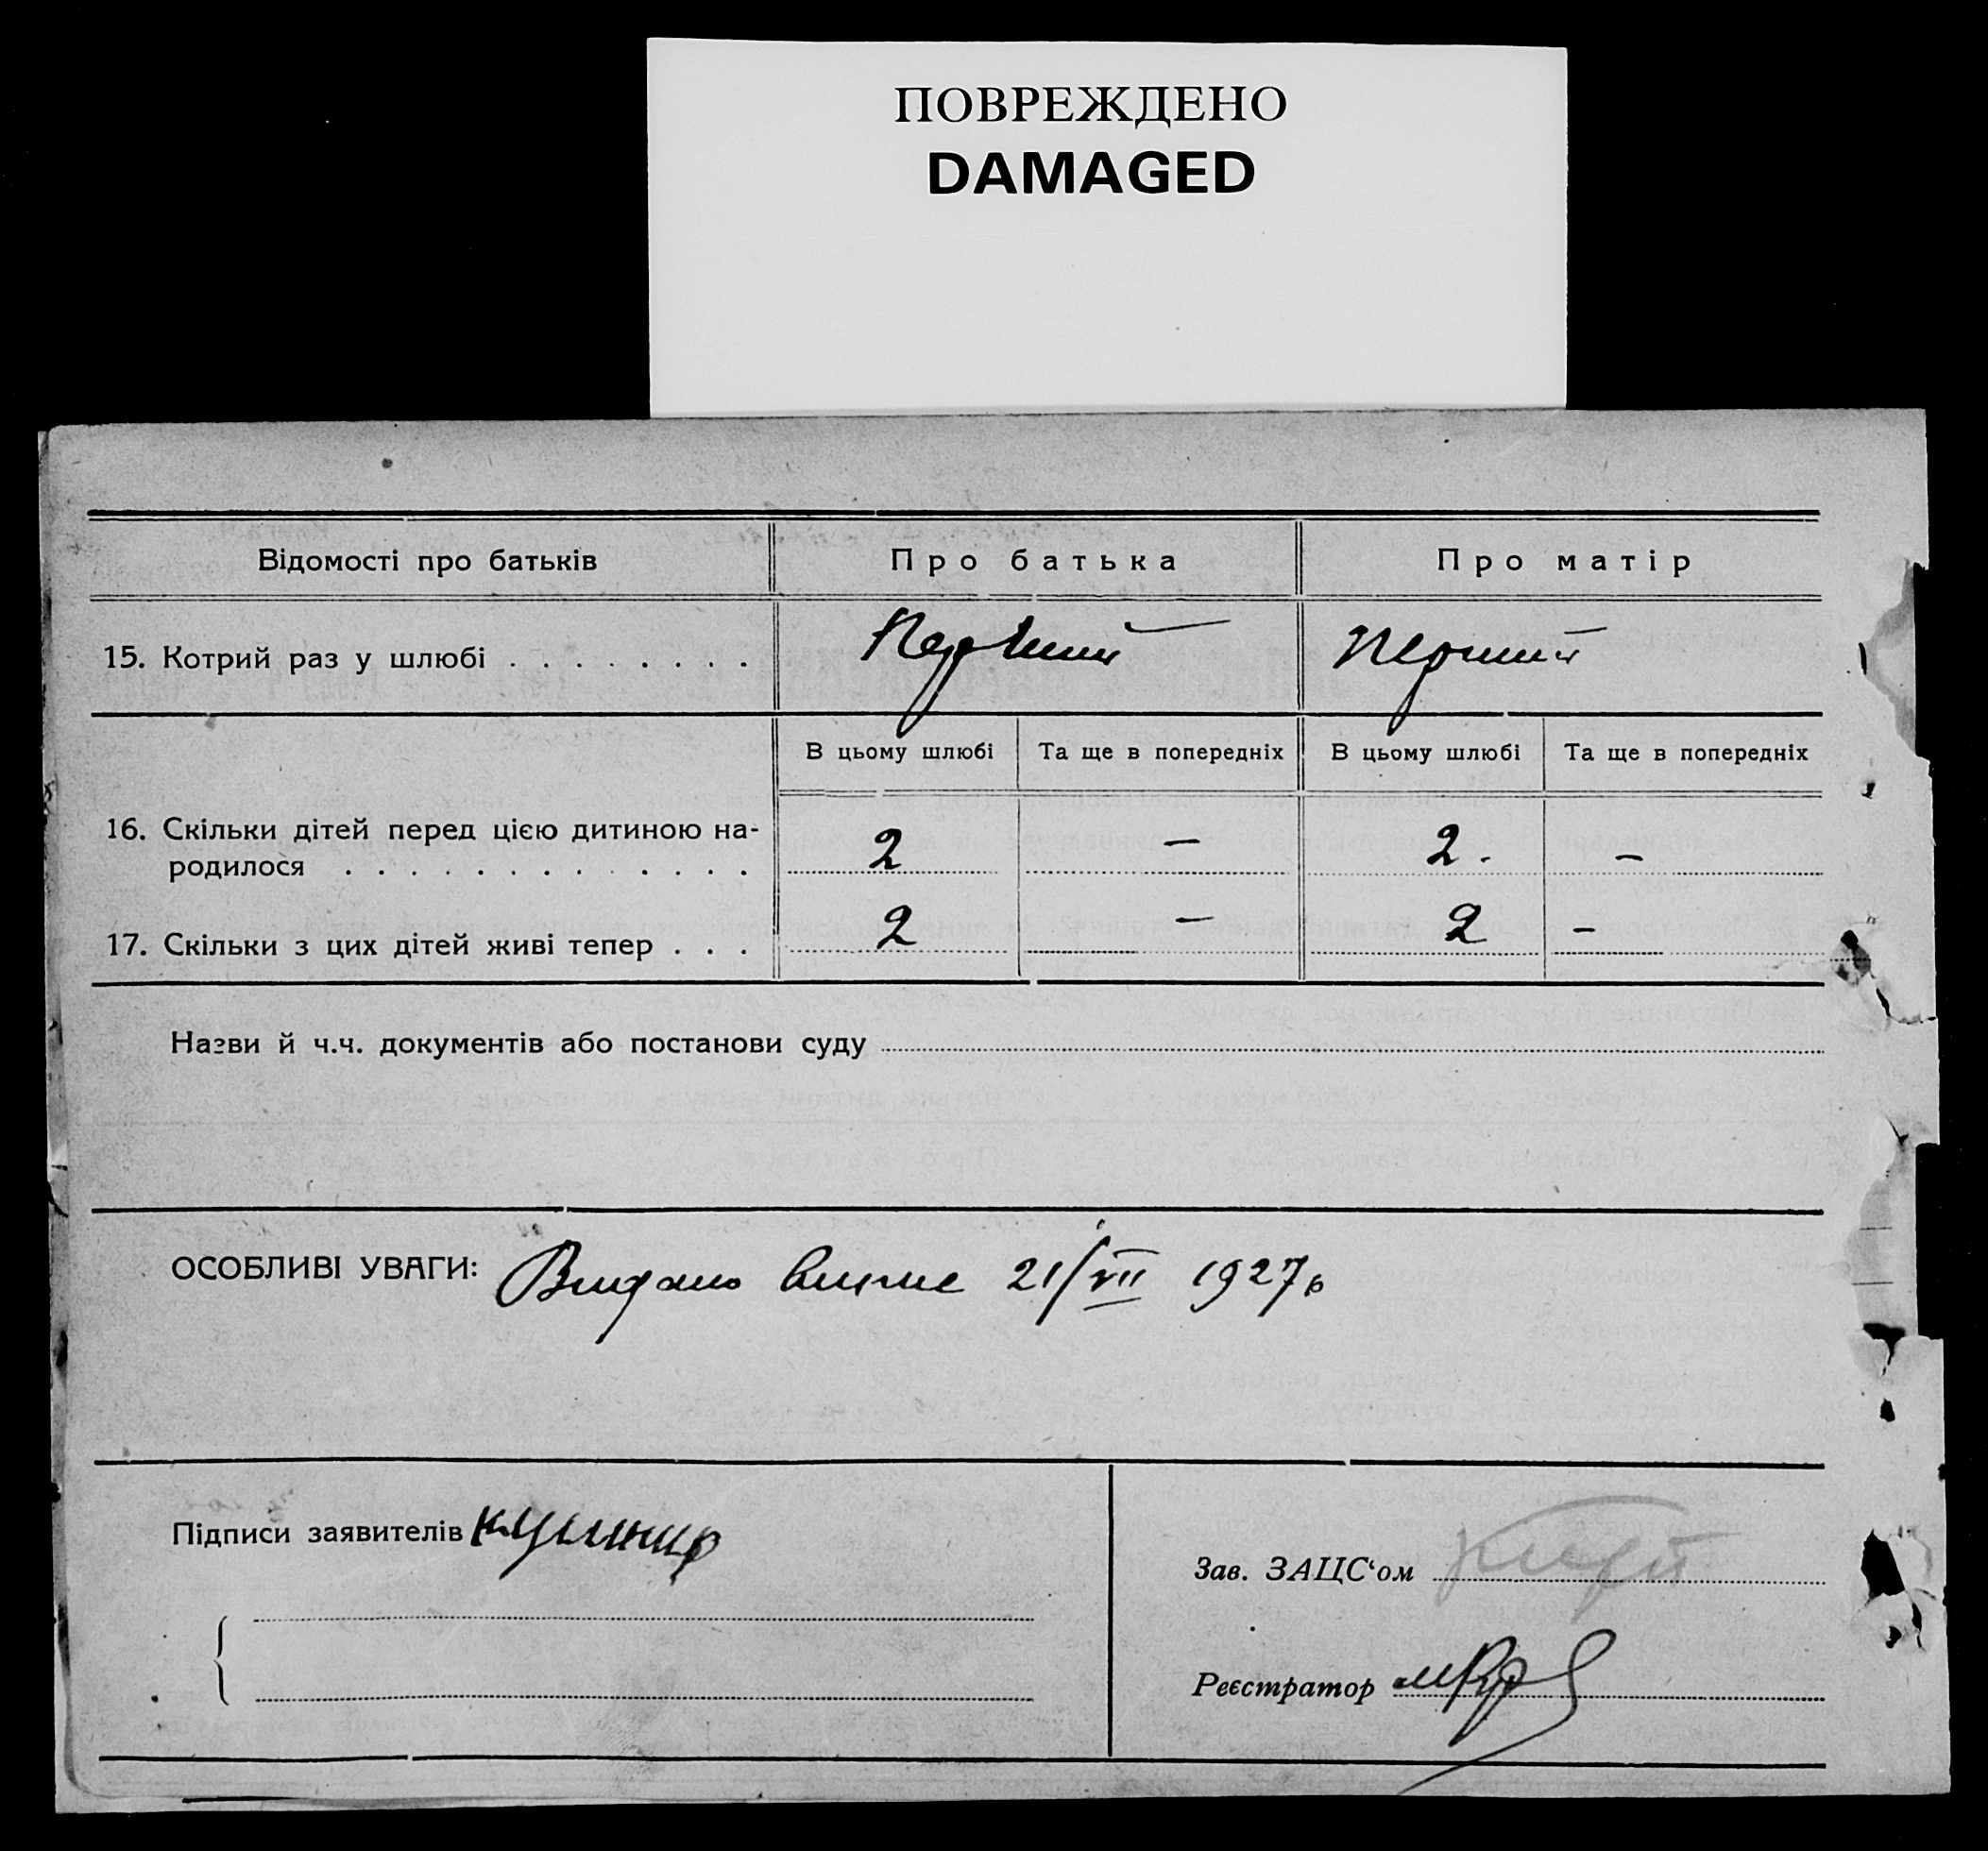 ПОВРЕЖДЕНО
DAMAGED
Відомості про батьків
Про батька
Про матір
15. Котрий раз у шлюбі . . . . . . . .
Первий
Перший
В цьому шлюбі
Та ще в попередніх
В цьому шлюбі
Та ще в попередніх
16. Скільки дітей перед цією дитиною на-
родилося . . . . . . . . . . . .
2
—
2.
—
17. Скільки з цих дітей живі тепер . . .
2
—
2
—
Назви й ч.ч. документів або постанови суду
ОСОБЛИВІ УВАГИ: Видано випис 21/VII 1927 р
Підписи заявителів
Зав. ЗАЦС‘ом
Реєстратор